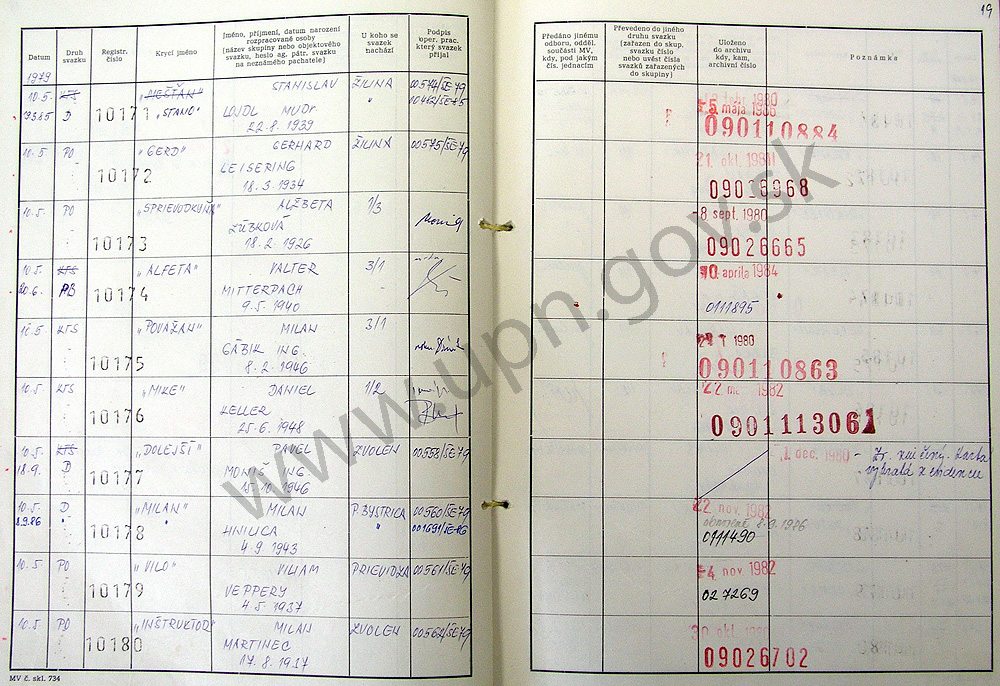 19
Datum
Druh svazku
Registr. číslo
Krycí jméno
Jméno, příjmení, datum narození
rozpracované osoby
(název skupiny nebo objektového
svazku, heslo ag. pátr. svazku
na neznámého pachatele)
U koho se
svazek
nachází
Podpis
oper. prac.
který svazek
přijal
Předáno jinému
odboru, odděl.
součásti MV,
kdy, pod jakým
čís. jednacím
Převedeno do jiného
druhu svazku
(zařazen do skup.
svazku číslo
nebo uvést čísla
svazků zařazených
do skupiny)
Uloženo
do archivu
kdy, kam,
archivní číslo
Poznámka
1979
10.5. KTS STANISLAV ŽILINA 00574/SE-79
D 10171 "STANO" MUDr. "
22.8.1939
5. mája 1986
090110884
10.5. PO "GERD" GERHARD ŽILINA 00575/SE-79
10172 LEISERING
18.3.1934
21. okt. 1980
09016968
10.5. PO ALŽBETA 1/3
10173 ZÚBKOVÁ
18.2.1926
8 sept. 1980
09026665
10.5. KTS "ALFETA" VALTER 3/1
20.6. PB 10174 MITTERPACH
9.5.1940
10. apríla 1984
0111895
KTS "POVAŽAN" MILAN 3/1
10175 GÁBIK ING.
8.2.1946
1980
090110863
10.5. KTS "MIKE" DANIEL 1/2
10176 KELLER
25.6.1948
22 1982
0901113061
10.5. KTS "DOLEJŠÍ" PAVEL ZVOLEN 00558/SE-79
18.9. D 10177 ING.
15.10.1946
1. dec. 1980
10.5. D "MILAN" MILAN P. BYSTRICA 00560/SE-79
8.9.86 " 10178 HNILICA " 001691/SE-86
4.9.1943
22. nov. 1982
8.9.1986
0111490
10.5. PO "VILO" VILIAM PRIEVIDZA 00561/SE-79
10179 VEPPERY
4.5.1937
4. nov. 1982
027269
10.5. PO "INŠTRUKTOR" MILAN ZVOLEN 00562/SE-79
10180 MARTINEC
17.8.1937
30. okt.
09026702
MV č. skl. 734
www.upn.gov.sk